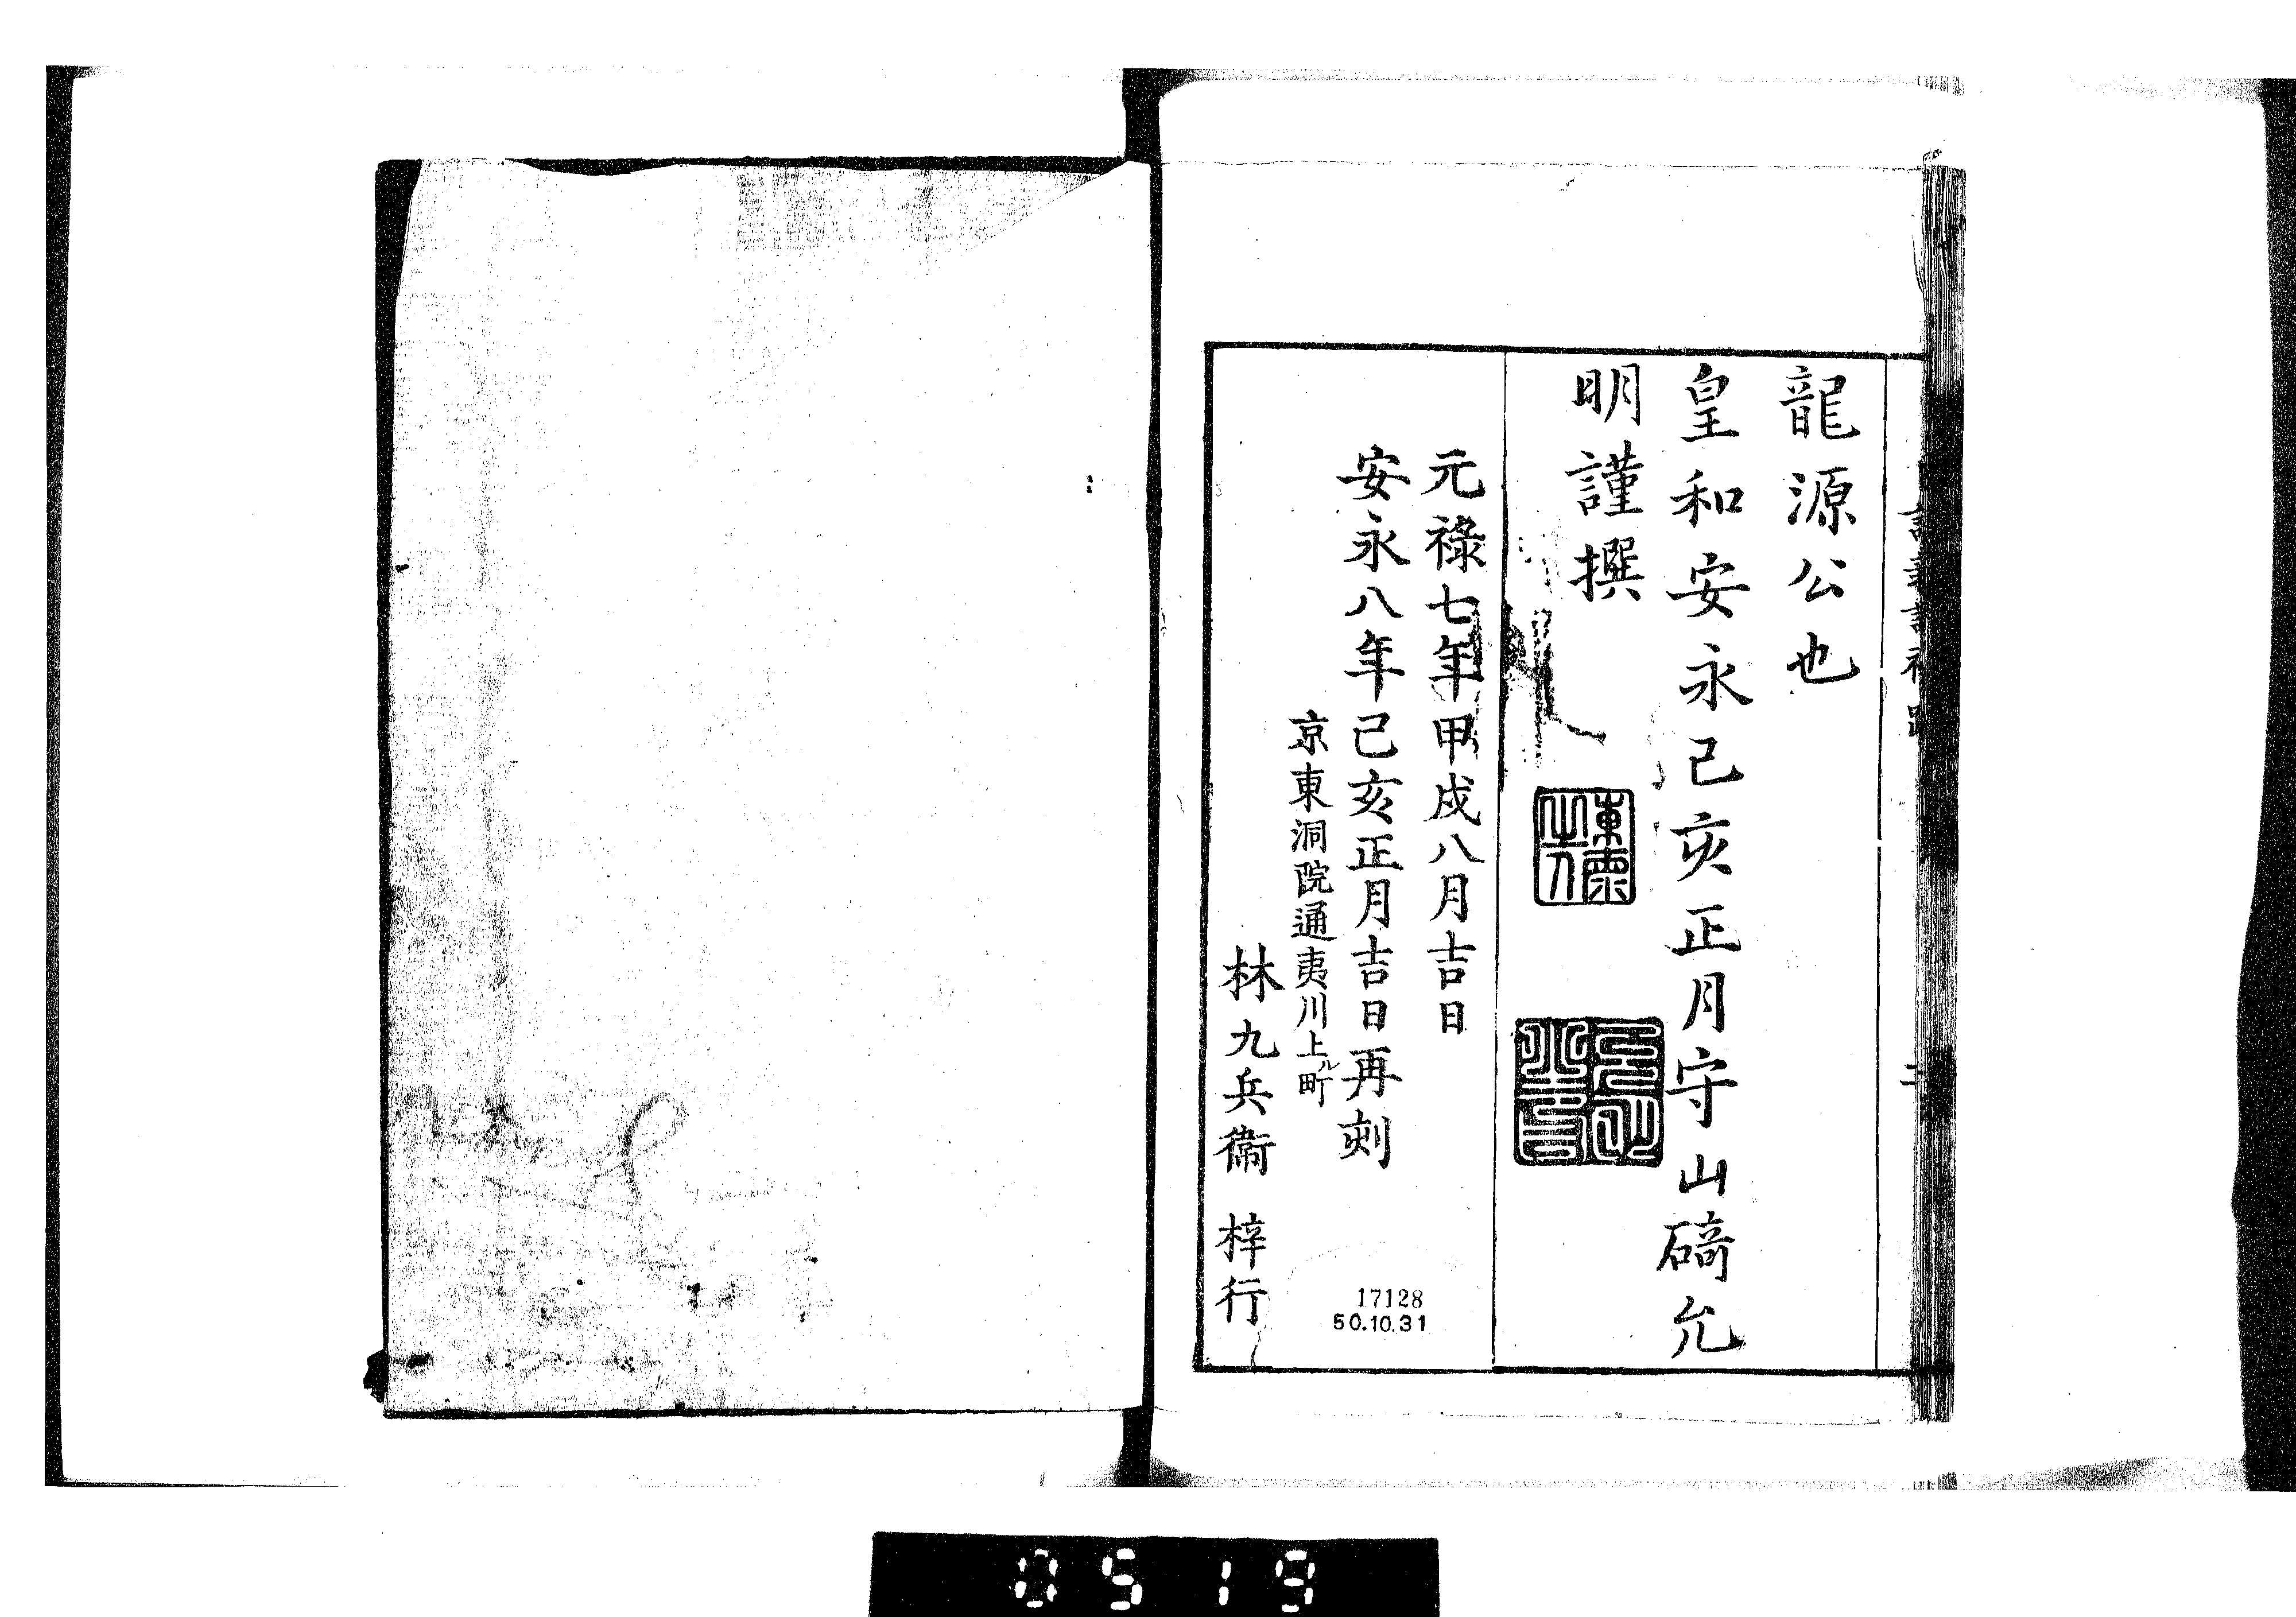 龍源公也
皇和安永己亥正月守山碕允
明謹撰
元祿七年甲戌八月吉日
安永八年己亥正月吉日再刻
京東洞院通夷川上ル町
林九兵衞 梓行
17128
50.10.31
0519